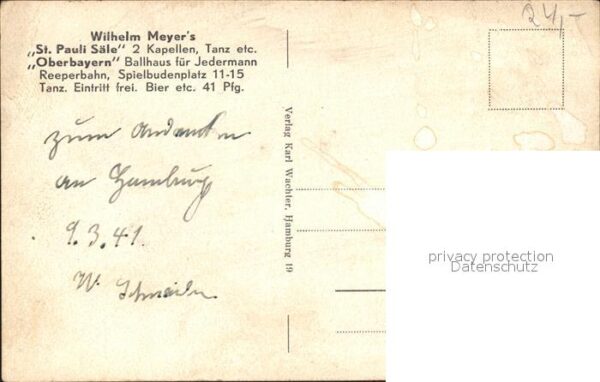 Wilhelm Meyer's
„St. Pauli Säle" 2 Kapellen, Tanz etc.
„Oberbayern" Ballhaus für Jedermann
Reeperbahn, Spielbudenplatz 11-15
Tanz. Eintritt frei. Bier etc. 41 Pfg.
zum Andenken
an Hamburg
9.3.41.
W.
Verlag Karl Wachter, Hamburg 19
24,-
privacy protection
Datenschutz